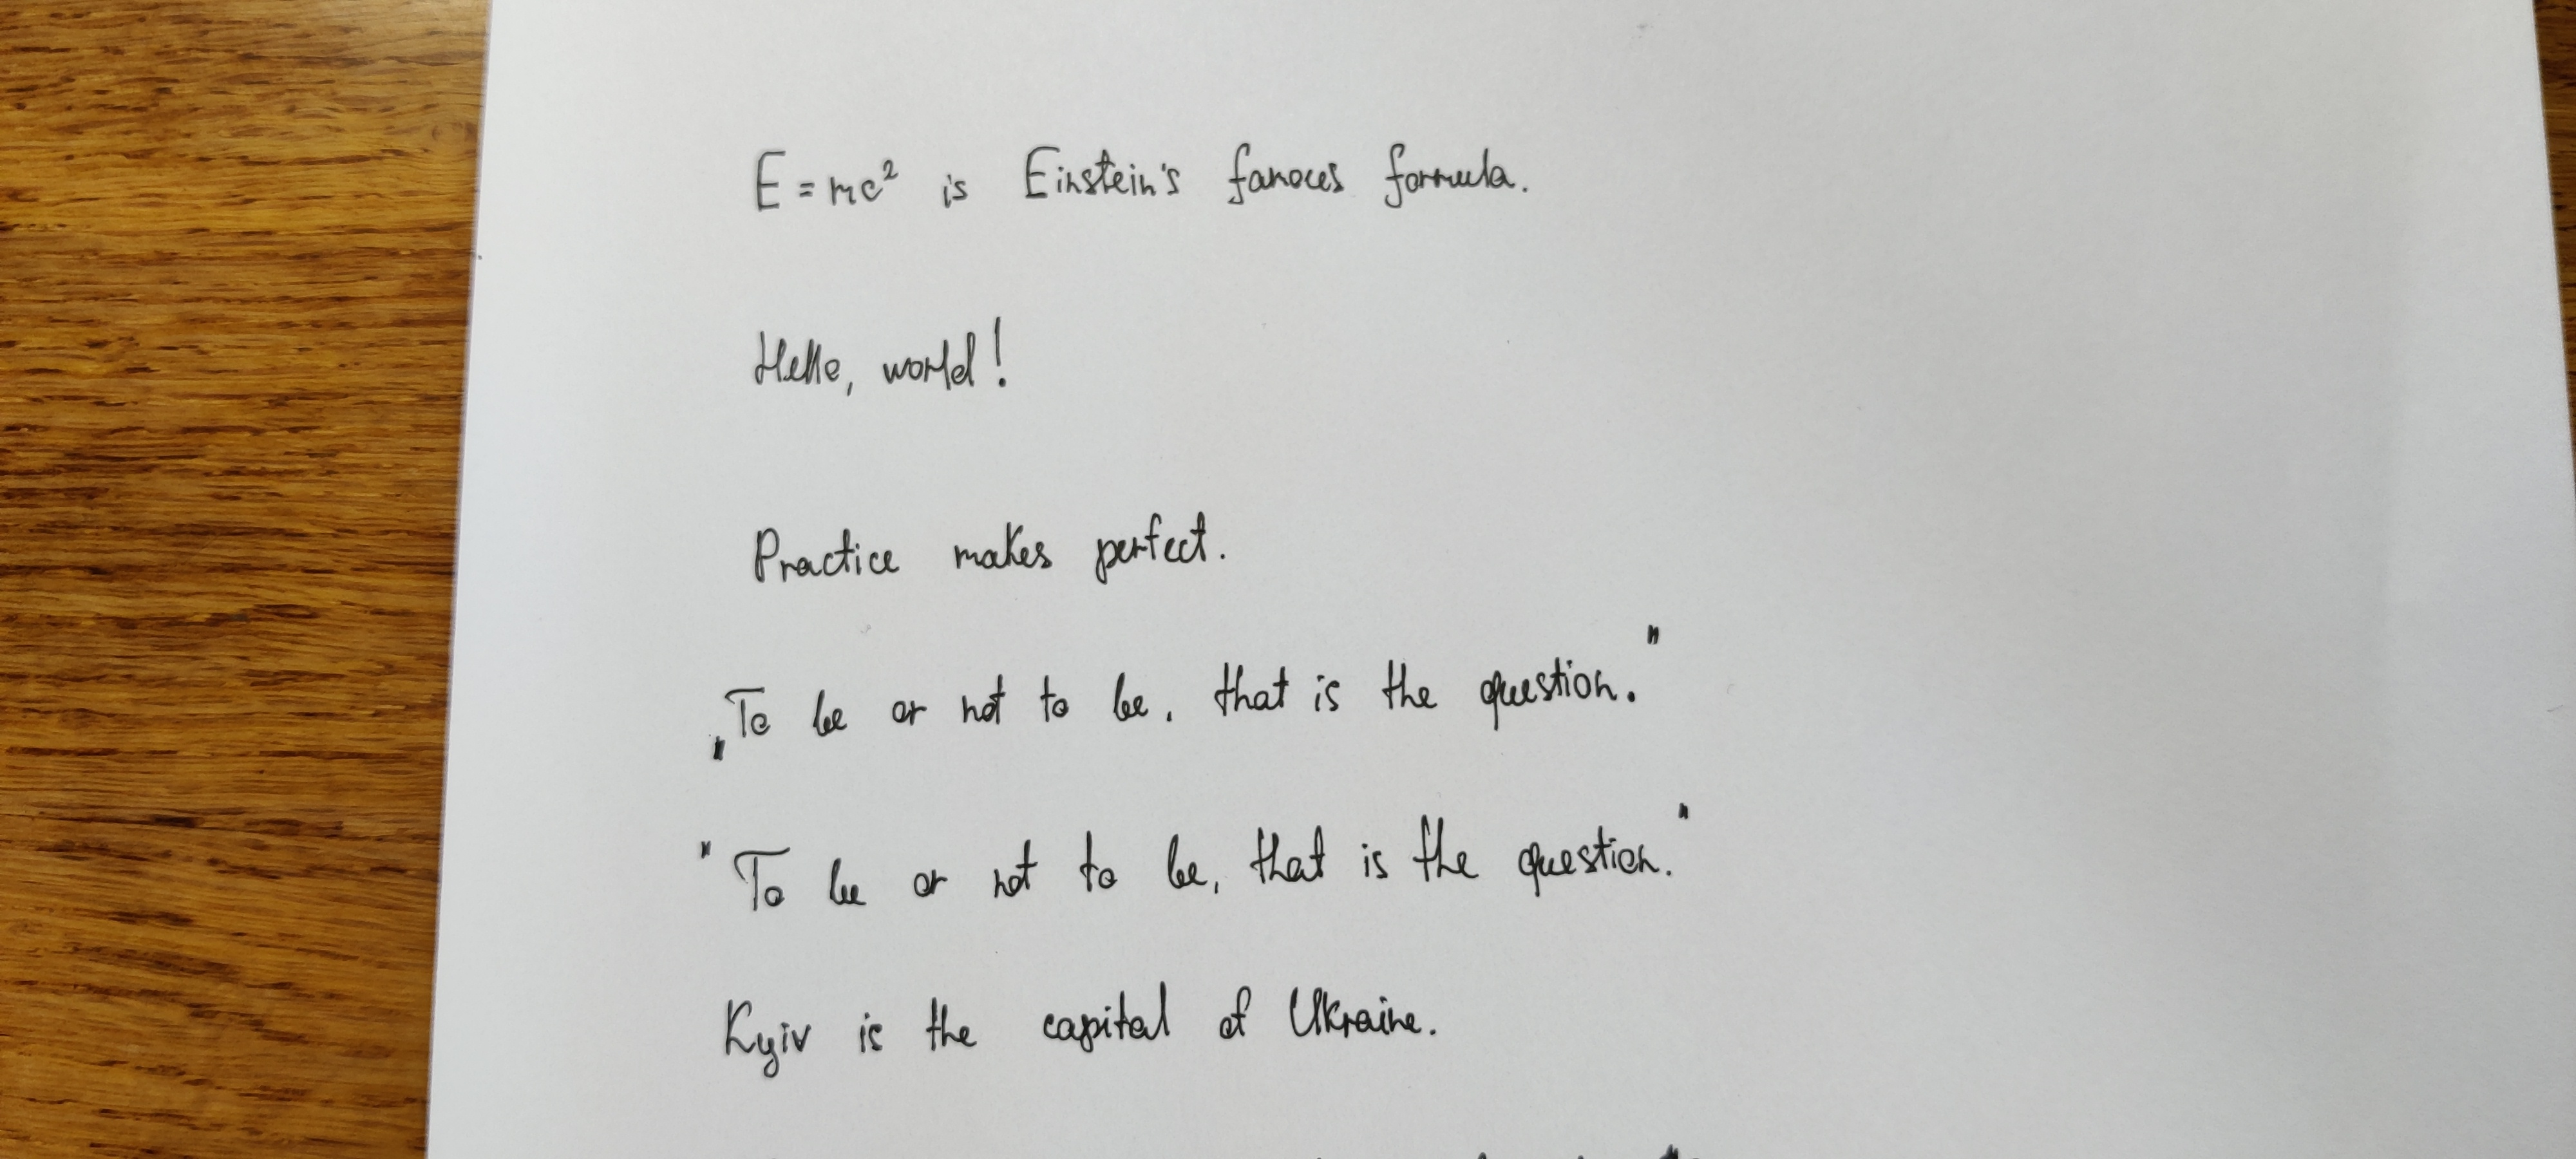 E=mc² is Einstein's famous formula.
Hello, world!
Practice makes perfect.
„To be or not to be, that is the question."
"To be or not to be, that is the question."
Kyiv is the capital of Ukraine.